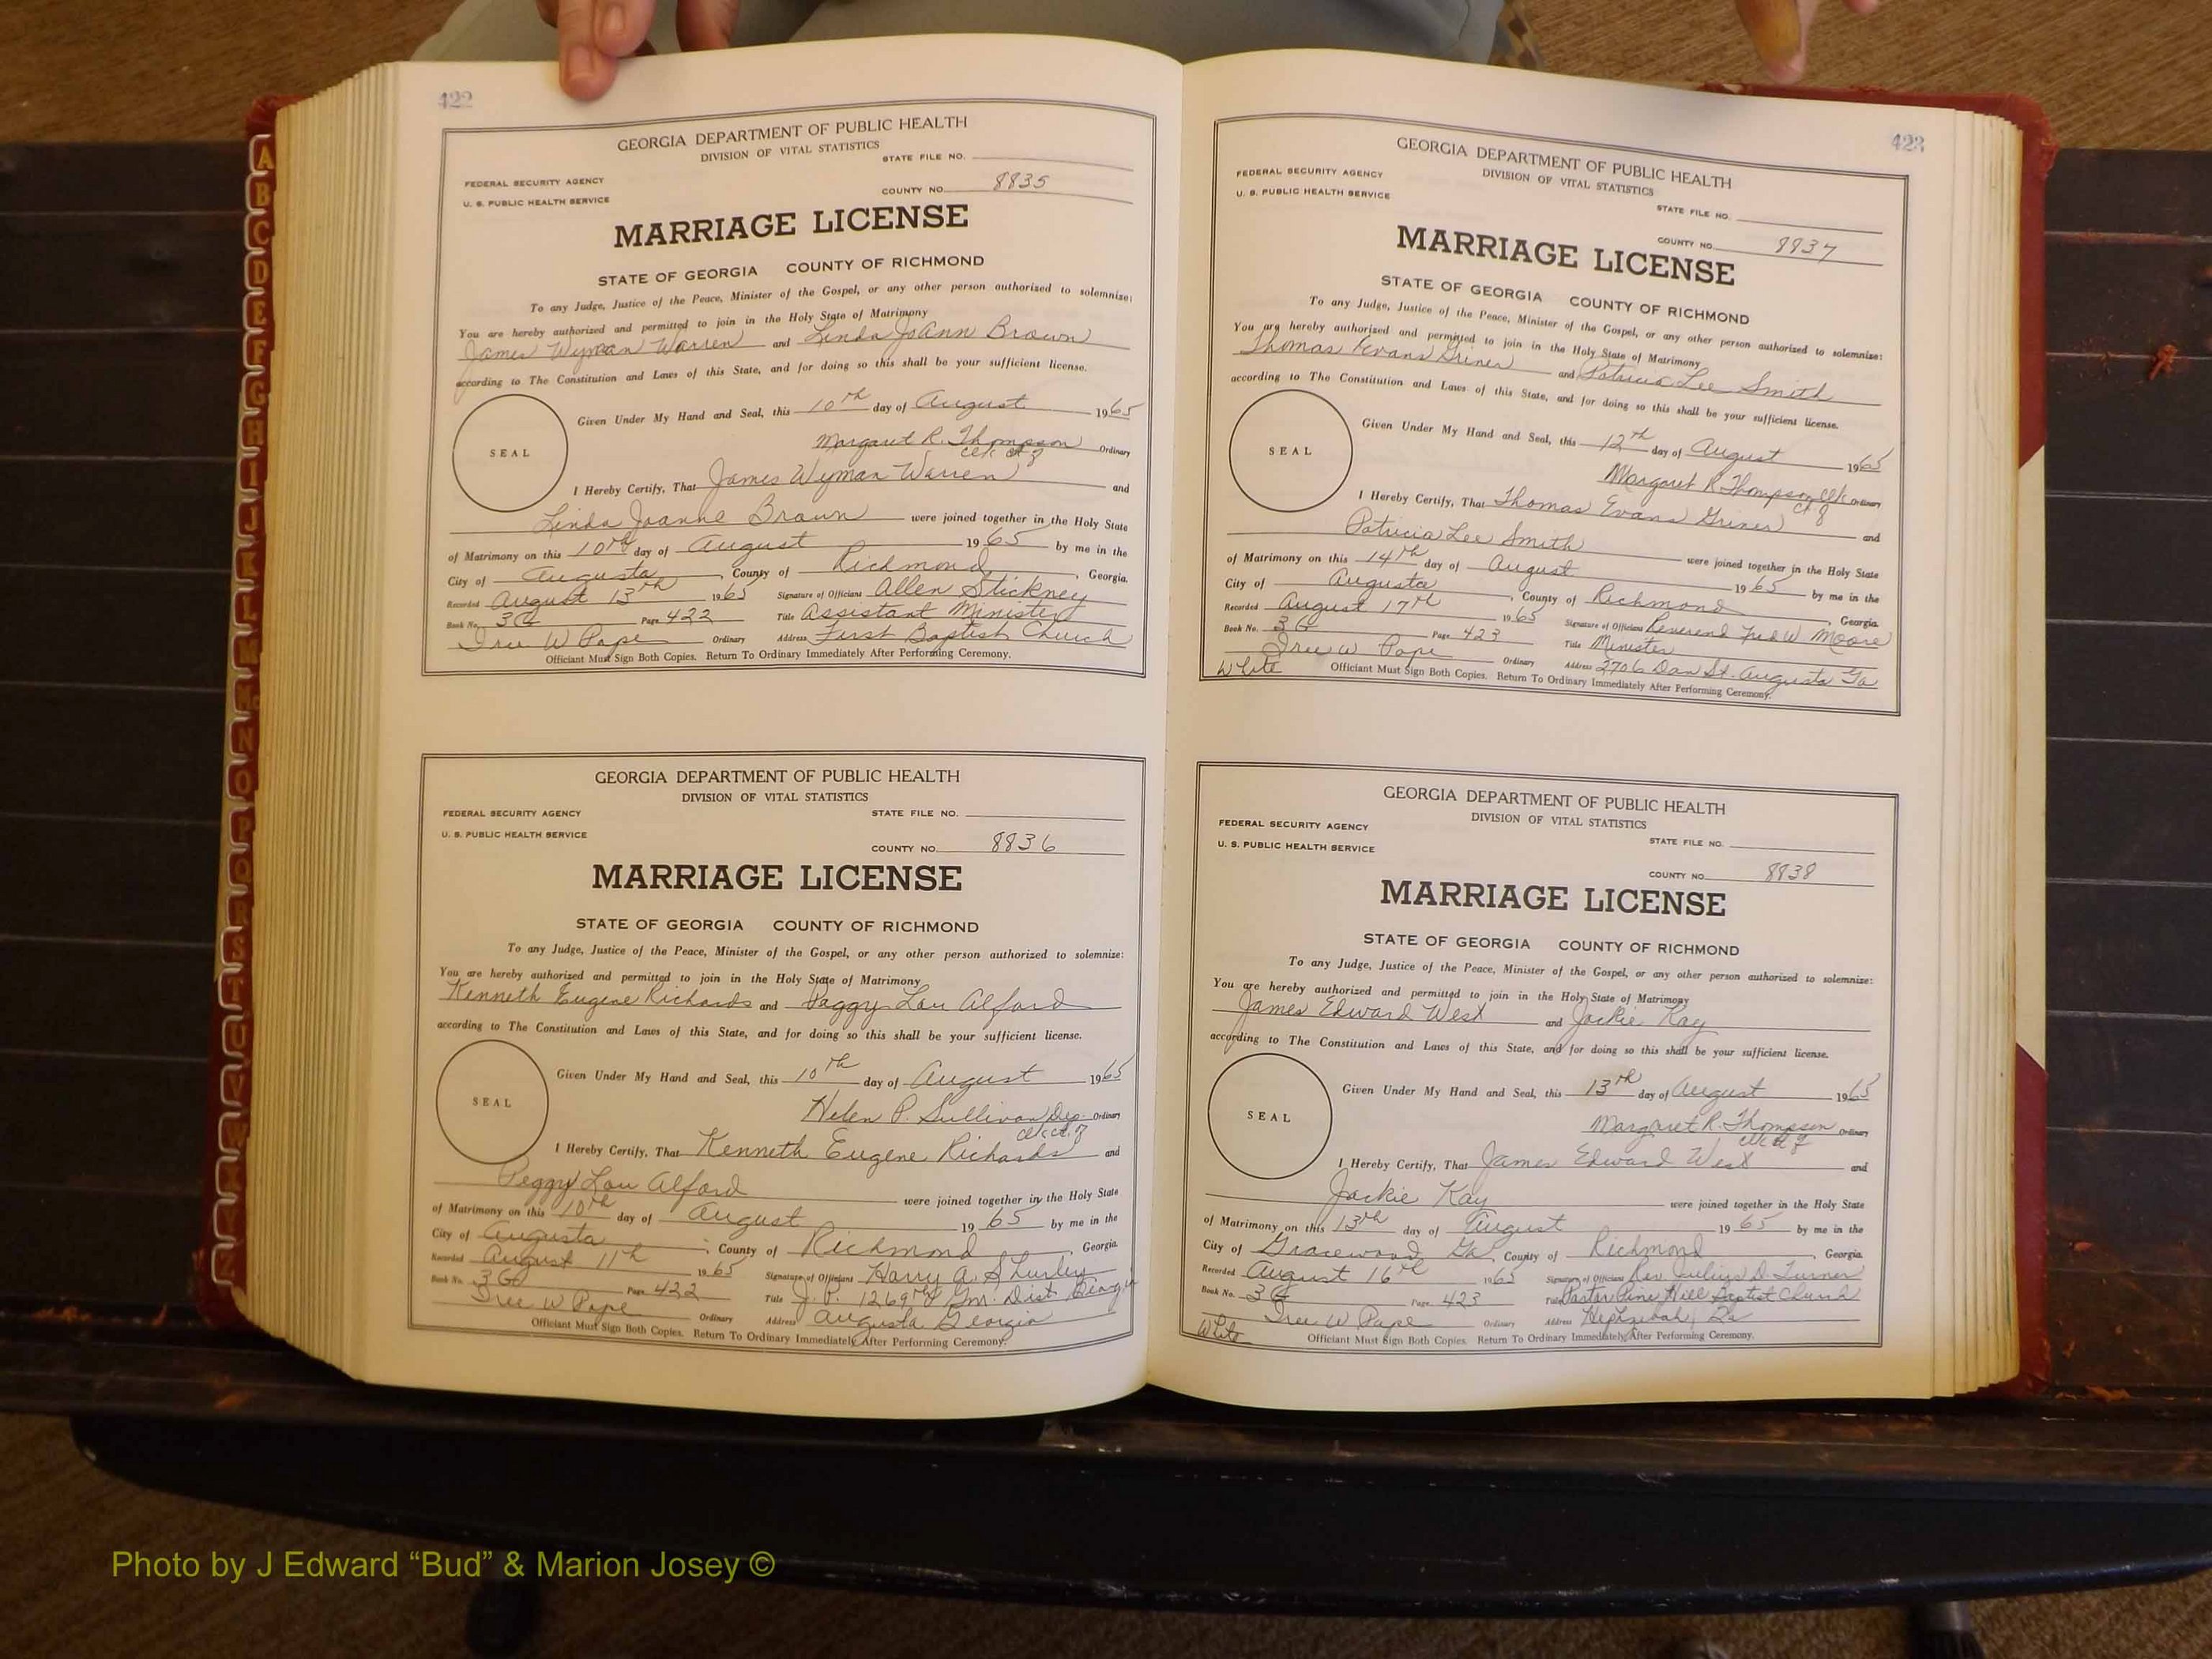 422
GEORGIA DEPARTMENT OF PUBLIC HEALTH
DIVISION OF VITAL STATISTICS
STATE FILE NO.
FEDERAL SECURITY AGENCY
COUNTY NO. 8835
U. S. PUBLIC HEALTH SERVICE
MARRIAGE LICENSE
STATE OF GEORGIA COUNTY OF RICHMOND
To any Judge, Justice of the Peace, Minister of the Gospel, or any other person authorized to solemnize:
You are hereby authorized and permitted to join in the Holy State of Matrimony
James Wyman Warren and Linda JoAnn Brown
according to The Constitution and Laws of this State, and for doing so this shall be your sufficient license.
Given Under My Hand and Seal, this 10th day of August 1965
SEAL
Margaret R. Thompson Ordinary
Clk
I Hereby Certify, That James Wyman Warren and
Linda Joanne Brown were joined together in the Holy State
of Matrimony on this 10th day of August 1965 by me in the
City of Augusta, County of Richmond, Georgia.
Recorded August 13th 1965 Signature of Officiant Allen Stickney
Book No. 3G Page 422 Title Assistant Minister
W Pope Ordinary Address First Baptist Church
Officiant Must Sign Both Copies. Return To Ordinary Immediately After Performing Ceremony.
GEORGIA DEPARTMENT OF PUBLIC HEALTH
DIVISION OF VITAL STATISTICS
FEDERAL SECURITY AGENCY STATE FILE NO.
U. S. PUBLIC HEALTH SERVICE
COUNTY NO. 8836
MARRIAGE LICENSE
STATE OF GEORGIA COUNTY OF RICHMOND
To any Judge, Justice of the Peace, Minister of the Gospel, or any other person authorized to solemnize:
You are hereby authorized and permitted to join in the Holy State of Matrimony
Kenneth Eugene Richards and Peggy Lou Alford
according to The Constitution and Laws of this State, and for doing so this shall be your sufficient license.
Given Under My Hand and Seal, this 10th day of August 1965
SEAL
Helen P. Sullivan Dep. Ordinary
I Hereby Certify, That Kenneth Eugene Richards and
Peggy Lou Alford were joined together in the Holy State
of Matrimony on this 10th day of August 1965 by me in the
City of Augusta, County of Richmond, Georgia.
Recorded August 11th 1965 Signature of Officiant Harry A. Shurley
Book No. 3G Page 422 Title J. P. 1269th Gm. Dist.
W Pope Ordinary Address Augusta Georgia
Officiant Must Sign Both Copies. Return To Ordinary Immediately After Performing Ceremony.
423
GEORGIA DEPARTMENT OF PUBLIC HEALTH
DIVISION OF VITAL STATISTICS
FEDERAL SECURITY AGENCY
U. S. PUBLIC HEALTH SERVICE
STATE FILE NO.
COUNTY NO. 8837
MARRIAGE LICENSE
STATE OF GEORGIA COUNTY OF RICHMOND
To any Judge, Justice of the Peace, Minister of the Gospel, or any other person authorized to solemnize:
You are hereby authorized and permitted to join in the Holy State of Matrimony
Thomas Evans Griner and Patricia Lee Smith
according to The Constitution and Laws of this State, and for doing so this shall be your sufficient license.
Given Under My Hand and Seal, this 12th day of August 1965
SEAL
Margaret R. Thompson Clk Ordinary
I Hereby Certify, That Thomas Evans Griner and
Patricia Lee Smith were joined together in the Holy State
of Matrimony on this 14th day of August 1965 by me in the
City of Augusta, County of Richmond, Georgia
Recorded August 17th 1965 Signature of Officiant Reverend Fred W Moore
Book No. 3G Page 423 Title Minister
W Pope Ordinary Address 2706 Dan St. Augusta Ga
White Officiant Must Sign Both Copies. Return To Ordinary Immediately After Performing Ceremony.
GEORGIA DEPARTMENT OF PUBLIC HEALTH
DIVISION OF VITAL STATISTICS
FEDERAL SECURITY AGENCY
STATE FILE NO.
U. S. PUBLIC HEALTH SERVICE
COUNTY NO. 8838
MARRIAGE LICENSE
STATE OF GEORGIA COUNTY OF RICHMOND
To any Judge, Justice of the Peace, Minister of the Gospel, or any other person authorized to solemnize:
You are hereby authorized and permitted to join in the Holy State of Matrimony
James Edward West and Jackie Kay
according to The Constitution and Laws of this State, and for doing so this shall be your sufficient license.
Given Under My Hand and Seal, this 13th day of August 1965
SEAL
Margaret R. Thompson Ordinary
I Hereby Certify, That James Edward West and
Jackie Kay were joined together in the Holy State
of Matrimony on this 13th day of August 1965 by me in the
City of Gracewood Ga, County of Richmond, Georgia.
Recorded August 16th 1965 Signature of Officiant Rev Julius D. Turner
Book No. 3G Page 423 Title Pastor Pine Hill Baptist Church
W Pope Ordinary Address Hephzibah, Ga
White Officiant Must Sign Both Copies. Return To Ordinary Immediately After Performing Ceremony.
A
B
C
D
E
F
G
H
I
J
K
L
M
Mc
N
O
P
Q
R
S
T
U
V
W
X
Y
Z
Photo by J Edward “Bud” & Marion Josey ©